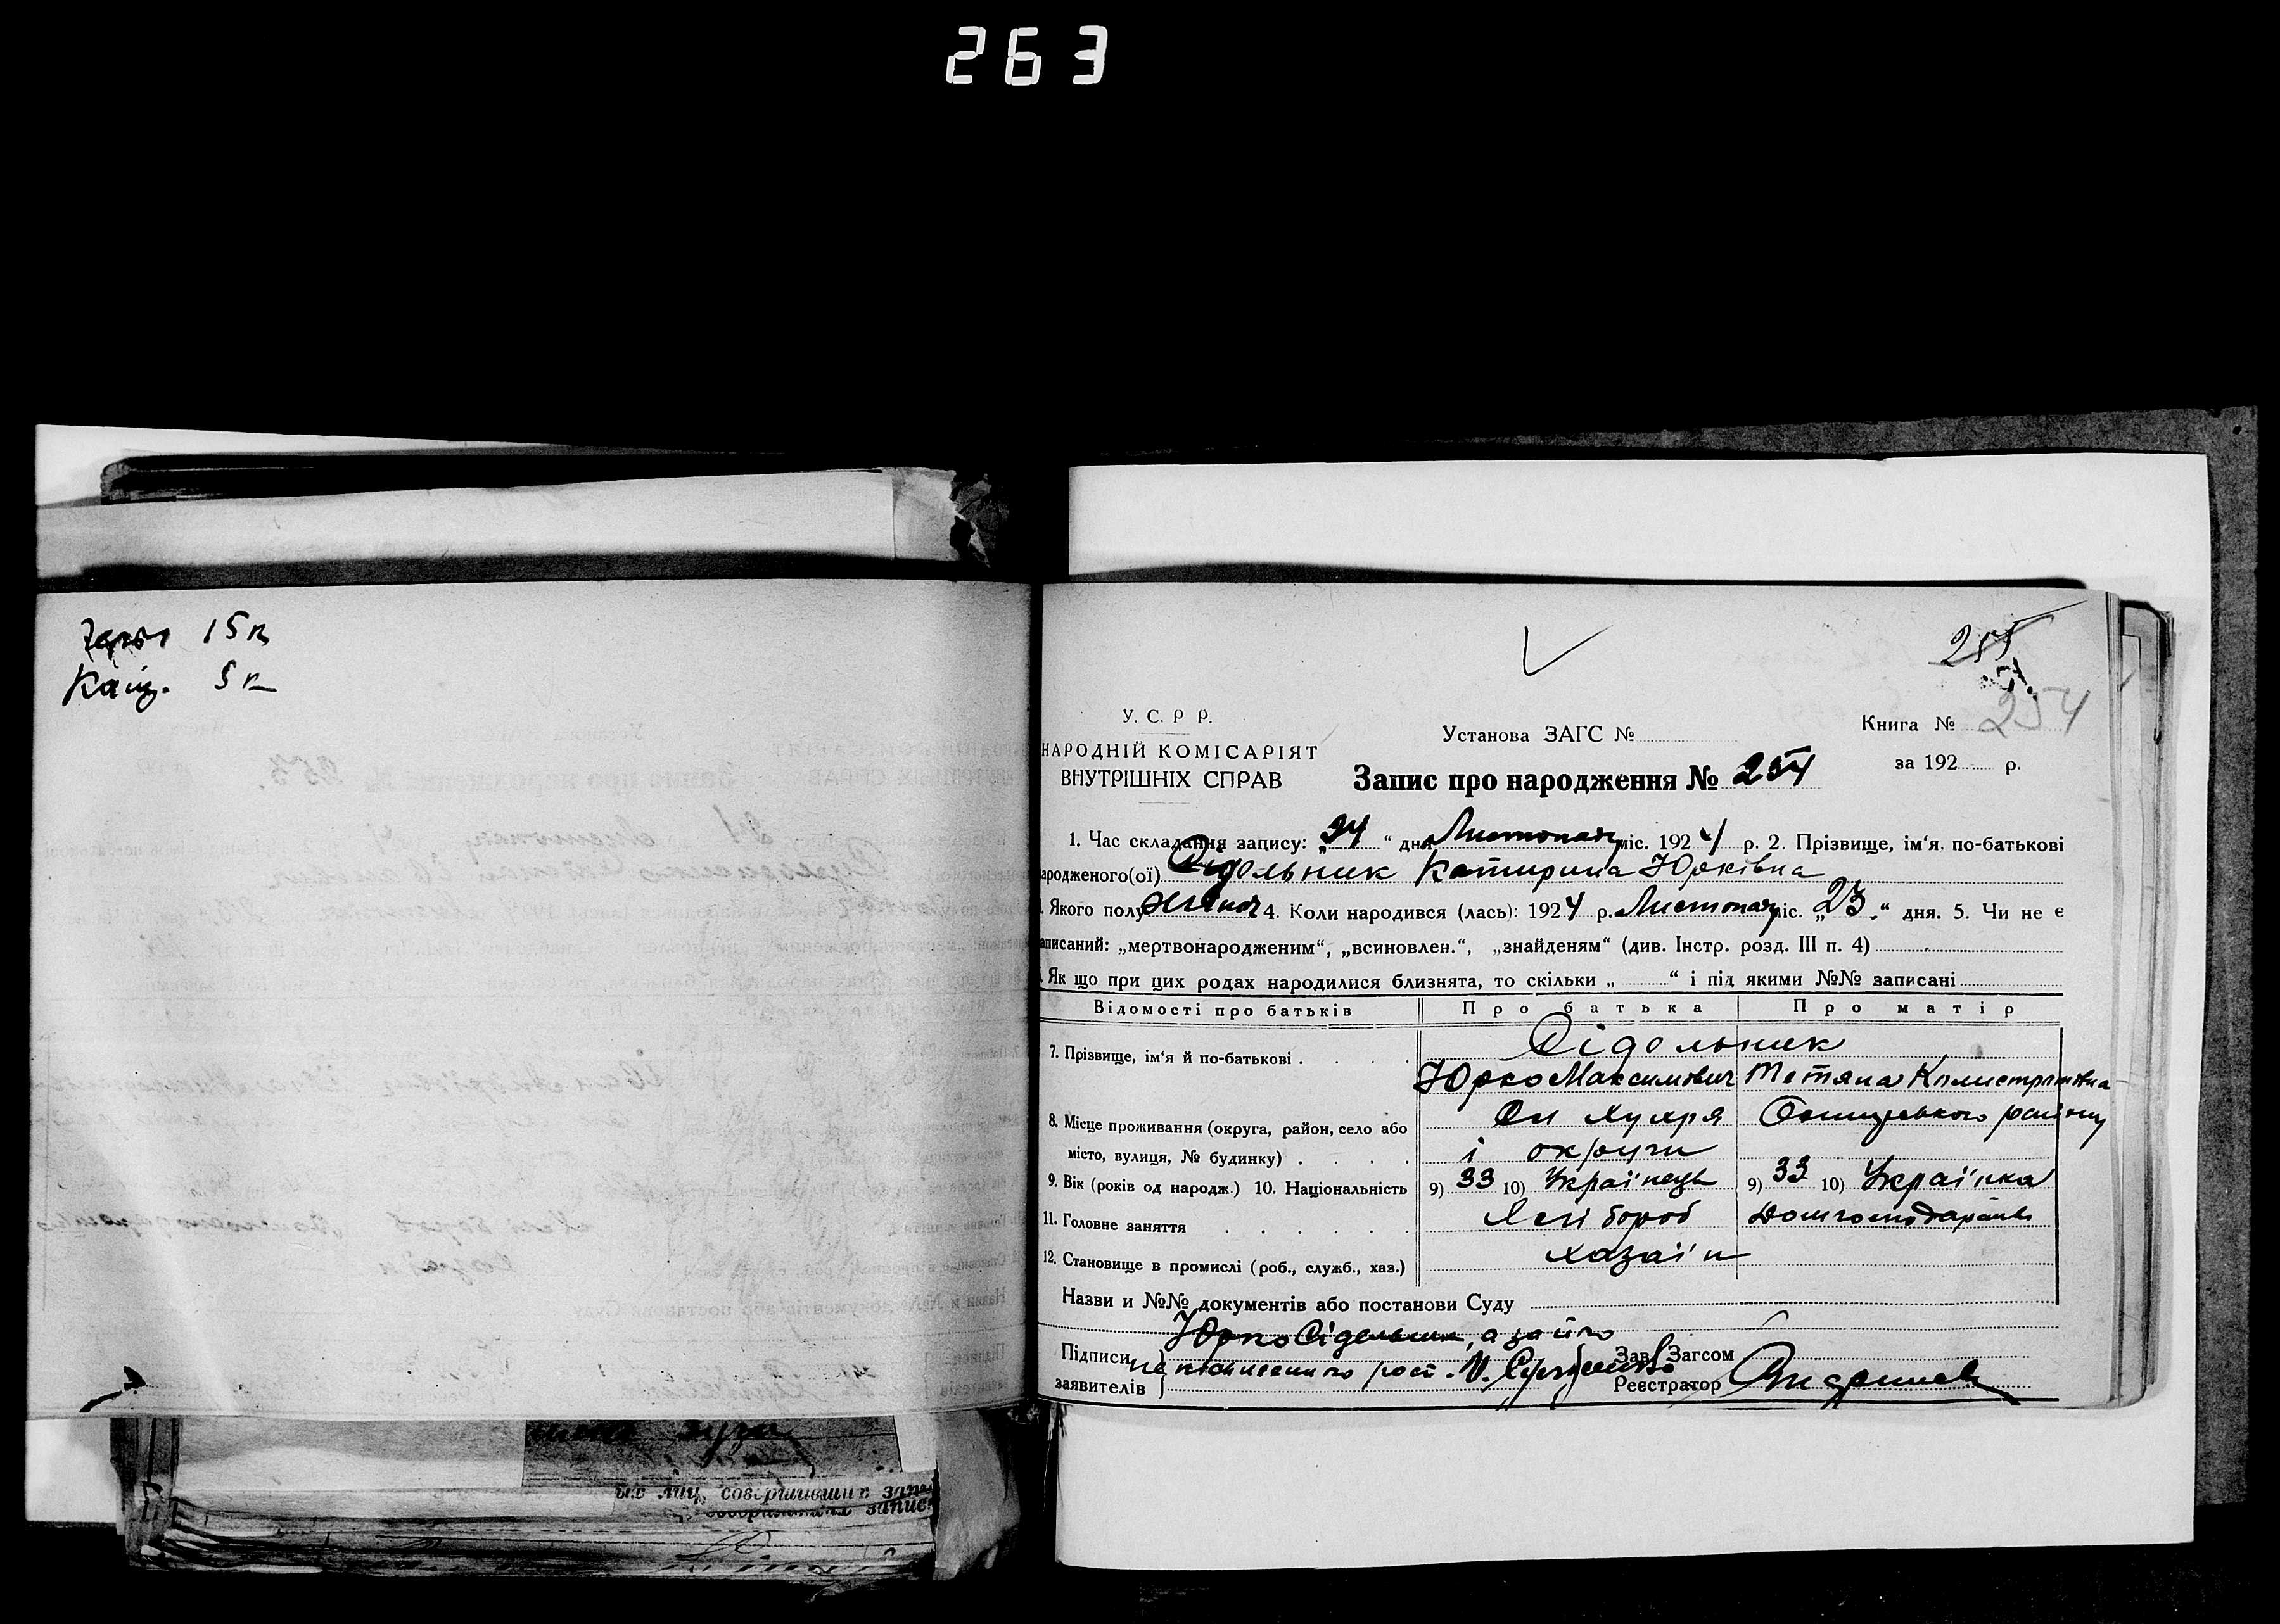 263
15 к
Канц. 5 к
255
254
У. С. Р. Р.
НАРОДНІЙ КОМІСАРІЯТ
ВНУТРІШНІХ СПРАВ
Установа ЗАГС №
Книга №
за 192 р.
Запис про народження № 254
1. Час складання запису: „24“ дня Листопад міс. 1924 р. 2. Прізвище, ім'я, по-батькові
ародженого(ої) Сідольник Катирина Юрківна
Якого полу жіноч 4. Коли народився (лась): 1924 р. Листопад міс. „23“ дня. 5. Чи не є
аписаний: „мертвонародженим“, „всиновлен.“, „знайденям“ (див. Інстр. розд. III п. 4)
Як що при цих родах народилися близнята, то скільки „ “ і під якими №№ записані
Відомості про батьків Про батька Про матір
7. Прізвище, ім'я й по-батькові . . . . Сідольник
Юрко Максимович Тетяна Калистратівна
8. Місце проживання (округа, район, село або
місто, вулиця, № будинку) . . . . і округи
9. Вік (років од народж.) 10. Національність 9) 33 10) Украі'нець 9) 33 10) Украі'нка
11. Головне заняття . . . . . . Хлі бороб
12. Становище в промислі (роб., служб., хаз.) хазаі'н
Назви и №№ документів або постанови Суду
Юрко Сідельник, а за його
Підписи заявителів
Зав. Загсом
Реєстратор